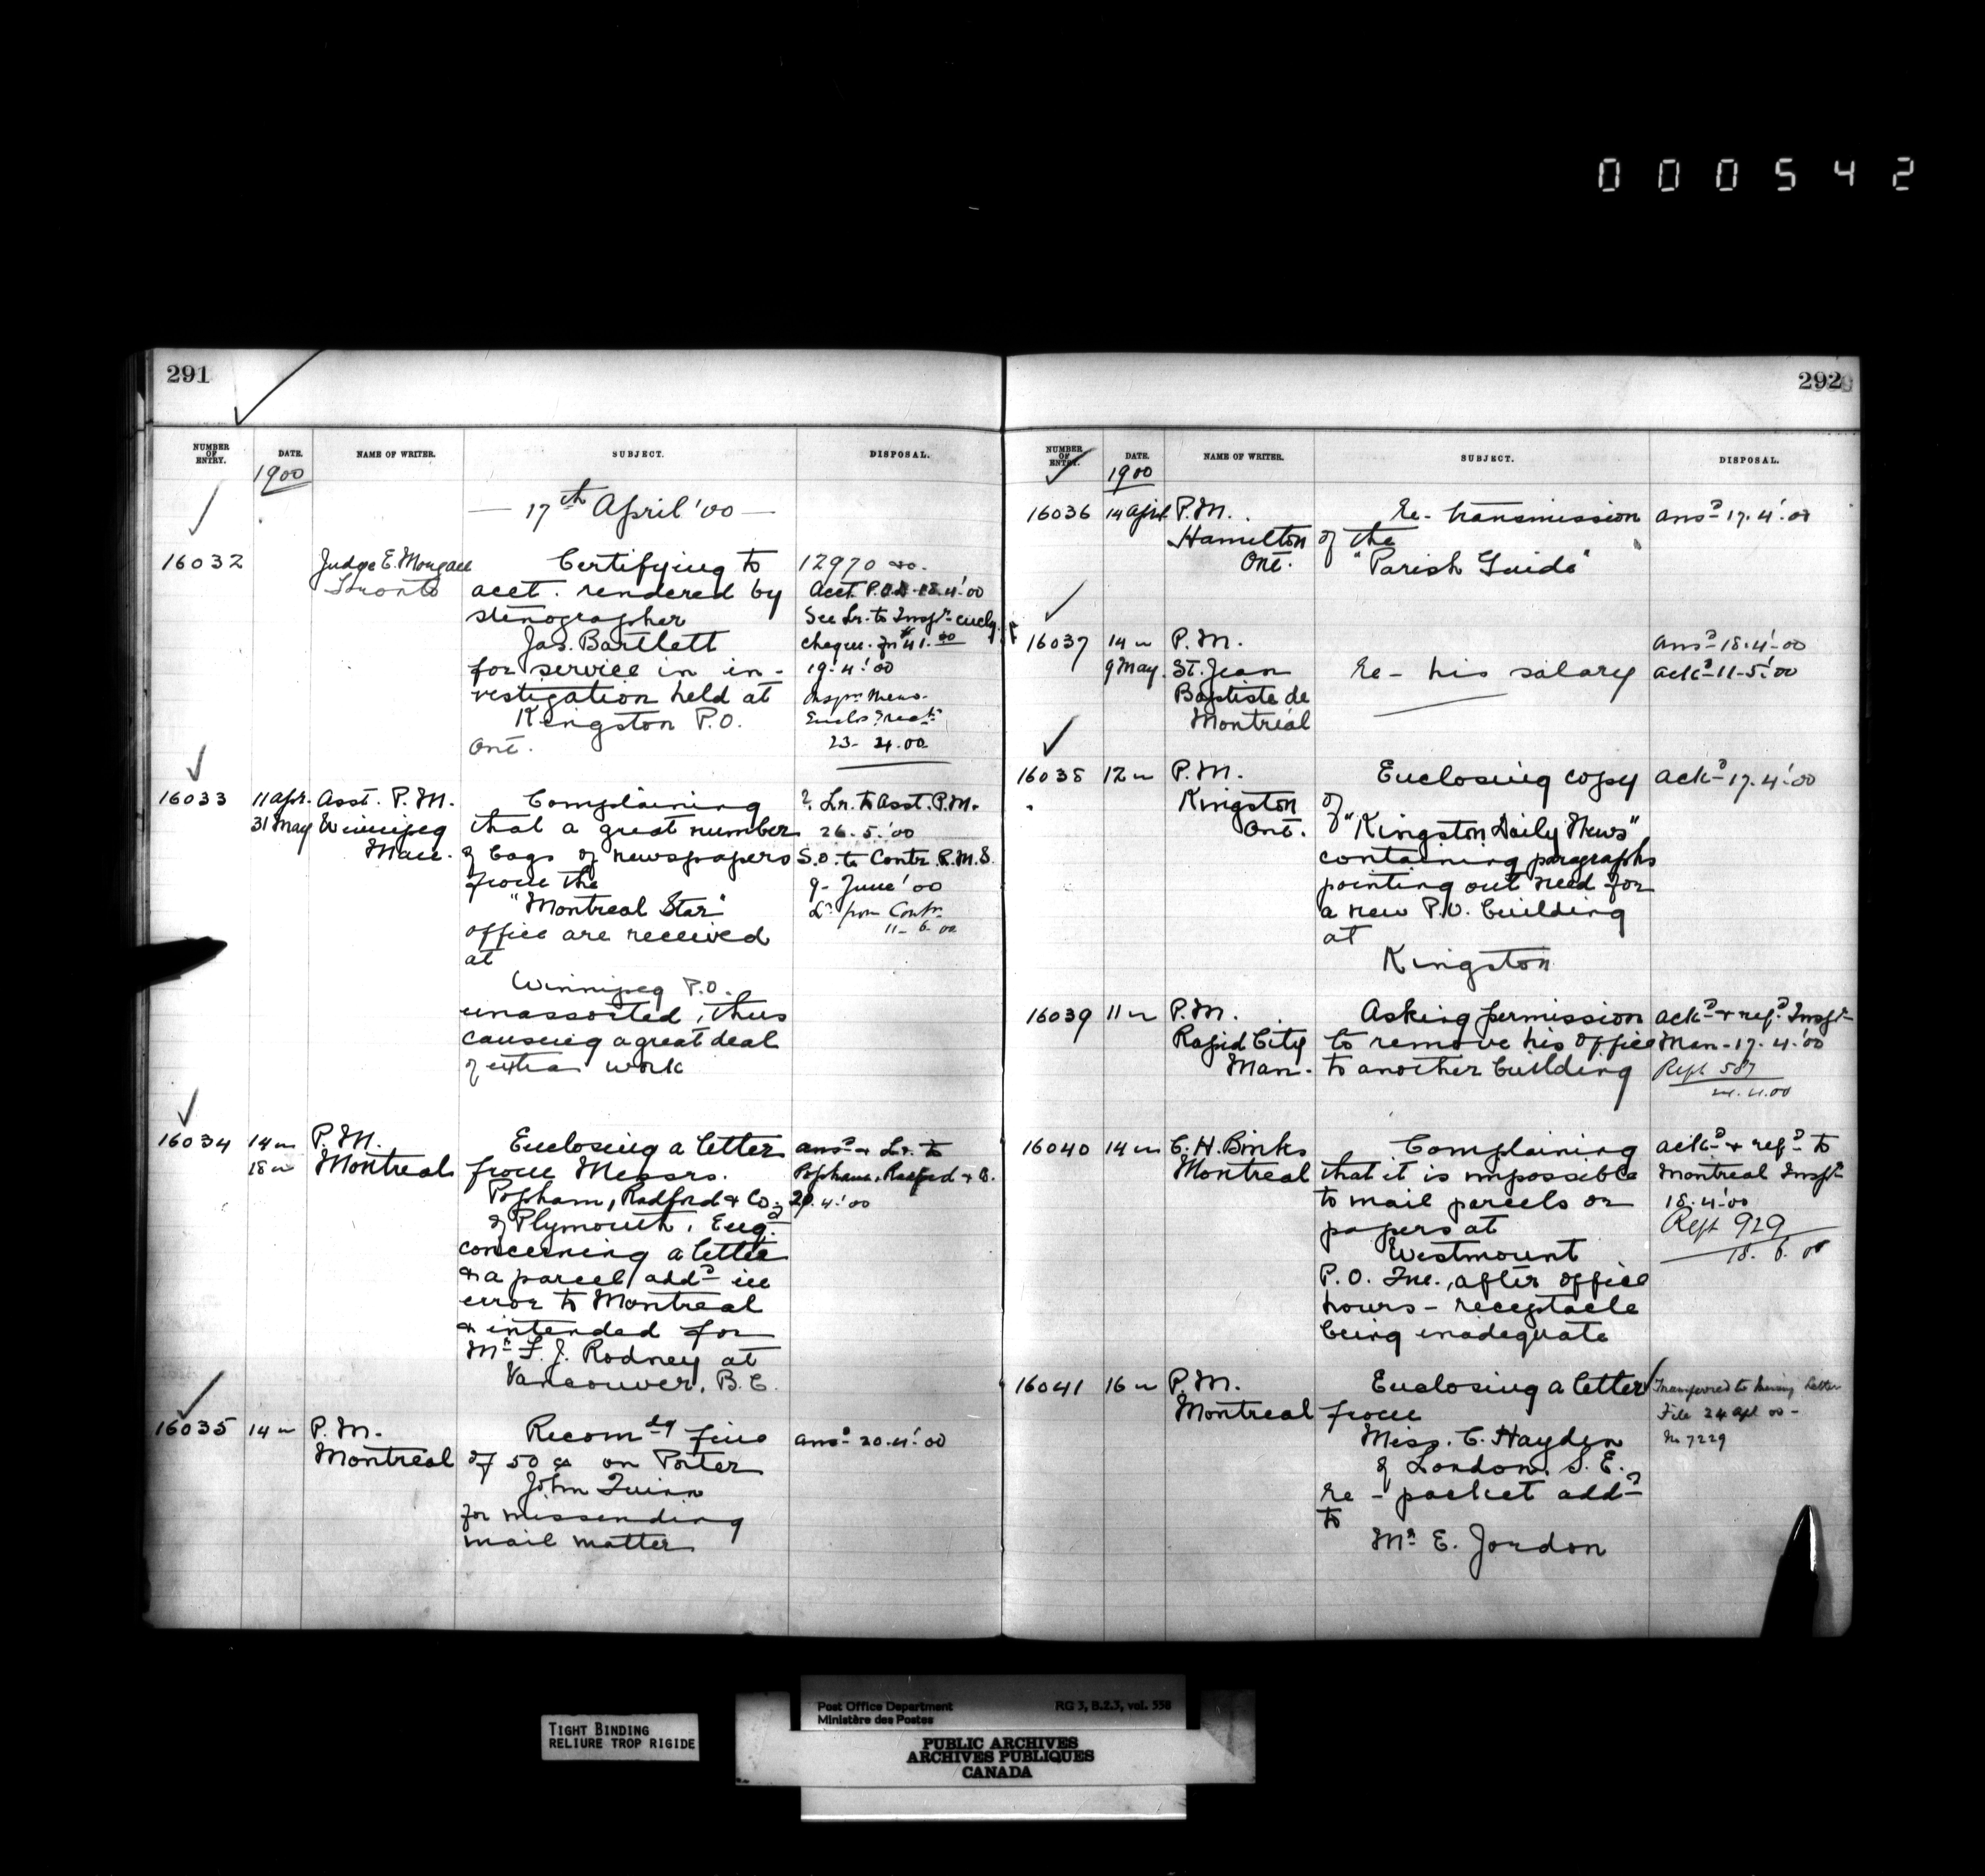 000542
291
NUMBER OF ENTRY. DATE. NAME OF WRITER. SUBJECT. DISPOSAL.
1900
— 17th April '00 —
16032 Judge E. Morgan Certifying to 12970 00.
Toronto acct. rendered by Acct. P.O.D. 18.4.'00
stenographer See Lr. to Inspr. enclg.
Jas. Bartlett cheque for $41.00
for service in in- 19.4.'00
vestigation held at Inspr. Memo.
Kingston P.O.
Ont. 23-4.00
16033 11 Apr. Asst. P.M. Complaining ? Lr. to Asst. P.M.
31 May Winnipeg that a great number 26.5.'00
Man. of bags of newspapers S.O. to Contr. R.M.S.
from the 9- June '00
"Montreal Star" Lr from Contr.
office are received 11-6.00
at
Winnipeg P.O.
unassorted, thus
causing a great deal
of extra work
16034 14 " P.M. Enclosing a letter ansd & Lr. to
18 " Montreal from Messrs. Popham, Radford & Co.
Popham, Radford & Co., 20.4.'00
of Plymouth, Engd.
concerning a letter
& a parcel addd in
error to Montreal
& intended for
Mr F. J. Rodney at
Vancouver, B.C.
16035 14 " P.M. Recomdg fine ansd 20.4.'00
Montreal of 50 cts on Porter
John Quinn
for missending
mail matter
292
NUMBER OF ENTRY. DATE. NAME OF WRITER. SUBJECT. DISPOSAL.
1900
16036 14 April P.M. Re- transmission ansd 17.4.'00
Hamilton of the
Ont. "Parish Guide"
16037 14 " P.M. ansd 18.4.'00
9 May St. Jean Re- his salary ackd 11-5.'00
Baptiste de
Montréal
16038 12 " P.M. Enclosing copy ackd 17.4.'00
Kingston of
Ont. "Kingston Daily News",
containing paragraphs
pointing out need for
a new P.O. building
at
Kingston
16039 11 " P.M. Asking permission ackd & refd Inspr
Rapid City to remove his office Man- 17.4.'00
Man. to another building Rept 587
16040 14 " C. H. Binks Complaining ackd & refd to
Montreal that it is impossible Montreal Inspr
to mail parcels or 18.4.00
papers at Rept 929
Westmount 18. 6. 00
P.O. Que., after office
hours - receptacle
being inadequate
16041 16 " P.M. Enclosing a letter Transferred to Missing Letter
Montreal from File 24 Apl 00-
Miss. C. Hayden No 7229
of London, S.E.
Re - packet addd
to
Mr E. Jordon
TIGHT BINDING
RELIURE TROP RIGIDE
Post Office Department RG 3, B.2.3, vol. 558
Ministère des Postes
PUBLIC ARCHIVES
ARCHIVES PUBLIQUES
CANADA